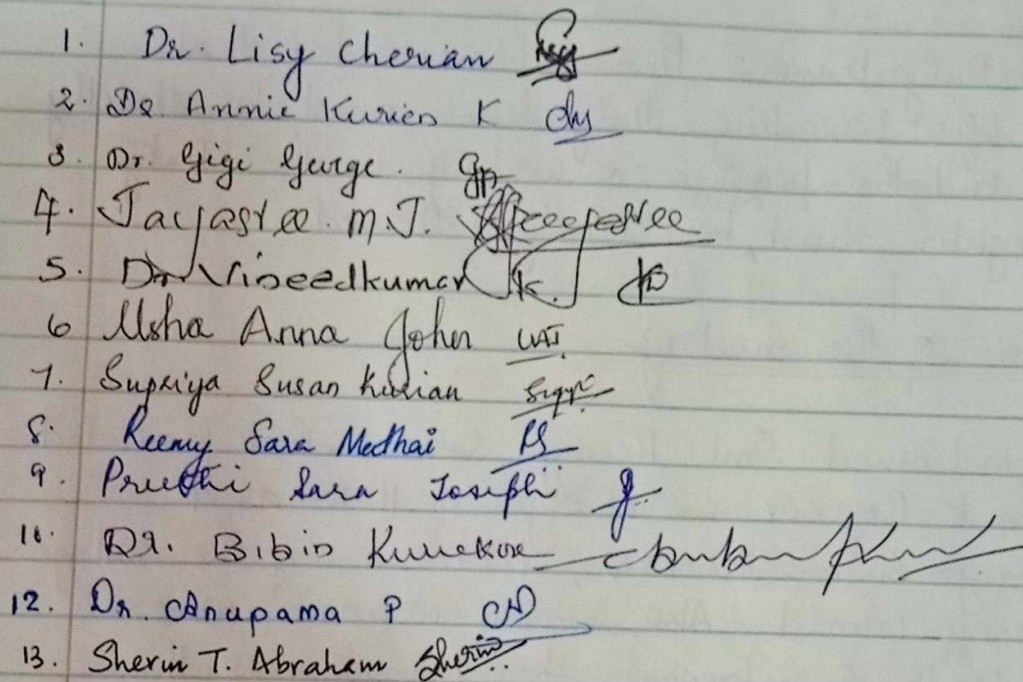 1. Dr. Lisy Cherian
2. Dr Annie Kurien K
3. Dr. Gigi George.
4. Jayasree. M.J.
5. Dr Vineedkumar K.
6 Usha Anna John UAJ.
7. Supriya Susan Kurian
8. Reemy Sara Mathai RS
9. Preethi Sara Joseph
10. Dr. Bibin Kuriakose
12. Dr. Anupama P
13. Sherin T. Abraham Sherin